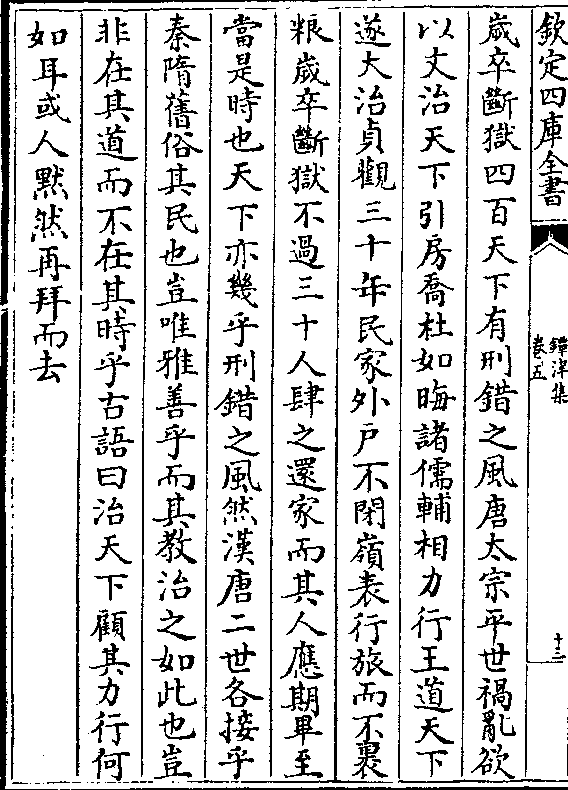 欽定四庫全書
鐔津集
卷五
十三
歲卒斷獄四百天下有刑錯之風唐太宗平世禍亂欲
以文治天下引房喬杜如晦諸儒輔相力行王道天下
遂大治貞觀三十年民家外戶不閉嶺表行旅而不裹
粮歲卒斷獄不過三十人肆之還家而其人應期畢至
當是時也天下亦幾乎刑錯之風然漢唐二世各接乎
秦隋舊俗其民也豈唯雅善乎而其教治之如此也豈
非在其道而不在其時乎古語曰治天下顧其力行何
如耳或人默然再拜而去